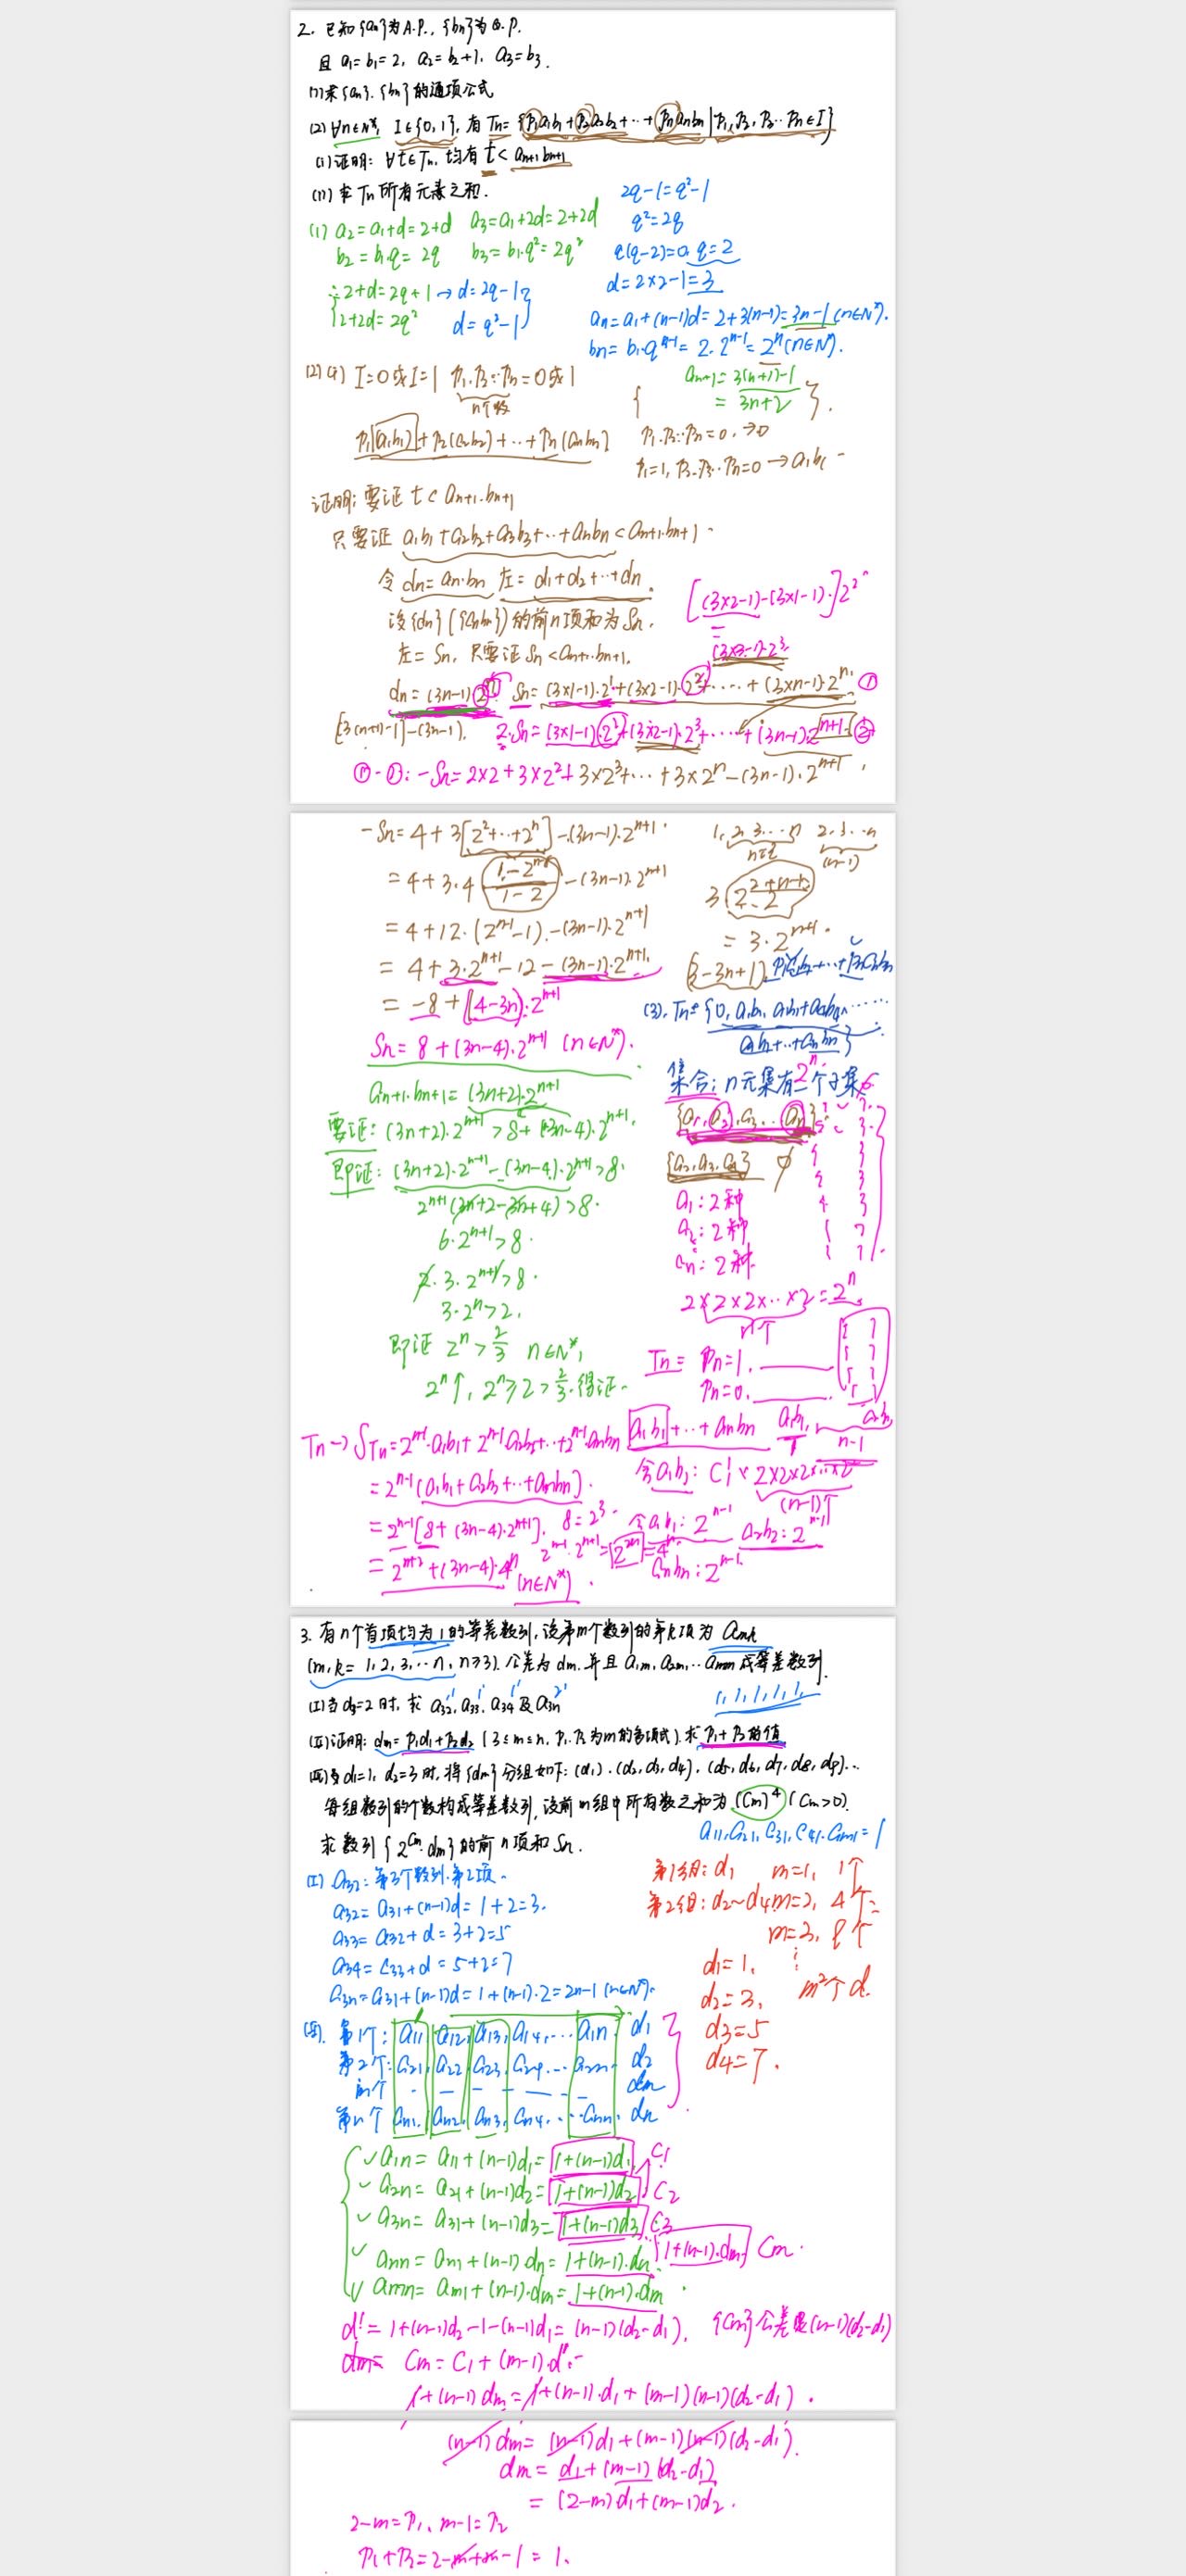 2. 已知{an}为A.P., {bn}为G.P.
且 a₁=b₁=2, a₂=b₂+1, a₃=b₃.
(1)求{an}.{bn}的通项公式
(2)∀n∈N*, I∈{0,1}, 有Tn={p₁a₁b₁+p₂a₂b₂+…+pnanbn|p₁,p₂,p₃…pn∈I}
(i)证明: ∀t∈Tn, 均有 t<an+1bn+1
(ii) 求Tn所有元素之和.
(1) a₂=a₁+d=2+d a₃=a₁+2d=2+2d
b₂=b₁q=2q b₃=b₁·q²=2q²
∴2+d=2q+1→d=2q-1
2+2d=2q² d=q²-1
2q-1=q²-1
q²=2q
q(q-2)=0, q=2
d=2×2-1=3
an=a₁+(n-1)d=2+3(n-1)=3n-1 (n∈N*).
bn=b₁·qⁿ⁻¹=2·2ⁿ⁻¹=2ⁿ(n∈N*).
(2) (i) I=0或I=1 p₁.p₂…pn=0或1
n个数
p₁(a₁b₁)+p₂(a₂b₂)+…+pn(anbn)
an+1=3(n+1)-1
=3n+2
p₁.p₂…pn=0.→0
p₁=1, p₂.p₃…pn=0→a₁b₁
证明: 要证 t<an+1·bn+1
只要证 a₁b₁+a₂b₂+a₃b₃+…+anbn<an+1·bn+1.
令dn=an·bn 左=d₁+d₂+…+dn.
设{dn}({anbn})的前n项和为Sn.
左=Sn, 只要证Sn<an+1·bn+1.
[(3×2-1)-(3×1-1)]2²
(3×3-1)·2³
dn=(3n-1)·2ⁿ Sn=(3×1-1)·2¹+(3×2-1)·2²+……+(3×n-1)·2ⁿ. ①
[3(n+1)-1]-(3n-1). 2·Sn=(3×1-1)·2²+(3×2-1)·2³+……+(3n-1)·2ⁿ⁺¹ ②
①-②: -Sn=2×2+3×2²+3×2³+…+3×2ⁿ-(3n-1)·2ⁿ⁺¹.
-Sn=4+3[2²+…+2ⁿ]-(3n-1)·2ⁿ⁺¹.
=4+3·4(1-2ⁿ⁻¹/1-2)-(3n-1)·2ⁿ⁺¹
=4+12·(2ⁿ⁻¹-1)-(3n-1)·2ⁿ⁺¹
=4+3·2ⁿ⁺¹-12-(3n-1)·2ⁿ⁺¹.
=-8+(4-3n)·2ⁿ⁺¹
Sn=8+(3n-4)·2ⁿ⁺¹ (n∈N*).
1,2,3…n 2,3…n
(n-1)
=3·2ⁿ⁺¹.
(3-3n+1)
an+1·bn+1=(3n+2)·2ⁿ⁺¹
要证: (3n+2)·2ⁿ⁺¹>8+(3n-4)·2ⁿ⁺¹.
即证: (3n+2)·2ⁿ⁺¹-(3n-4)·2ⁿ⁺¹>8.
2ⁿ⁺¹(3n+2-3n+4)>8.
6·2ⁿ⁺¹>8.
2·3·2ⁿ⁺¹>8.
3·2ⁿ>2.
即证 2ⁿ>2/3 n∈N*,
2ⁿ↑, 2ⁿ≥2>2/3.得证.
(3). Tn={0, a₁b₁, a₁b₁+a₂b₂,……
a₁b₁+…+anbn}
集合: n元集有2ⁿ个子集
{a₁,a₂,a₃…an}
∅
a₁: 2种
a₂: 2种
an: 2种.
2×2×2×…×2=2ⁿ.
n个
Tn= pn=1.
pn=0.
Tn→STn=2ⁿ⁻¹·a₁b₁+2ⁿ⁻¹a₂b₂+…+2ⁿ⁻¹·anbn
=2ⁿ⁻¹(a₁b₁+a₂b₂+…+anbn).
=2ⁿ⁻¹[8+(3n-4)·2ⁿ⁺¹]. 8=2³.
=2ⁿ⁺²+(3n-4)·4ⁿ (n∈N*).
2ⁿ⁻¹·2ⁿ⁺¹=2²ⁿ=4ⁿ
a₁b₁+…+anbn
n-1
2×2×2×…×2
(n-1)个
含a₁b₁: 2ⁿ⁻¹
a₂b₂: 2ⁿ⁻¹
anbn: 2ⁿ⁻¹.
3. 有n个首项均为1的等差数列,设第m个数列的第k项为amk
(m,k=1,2,3,…n, n≥3). 公差为dm,并且a₁n,a₂n,…ann成等差数列.
(I)当d₃=2时,求 a₃₂,a₃₃,a₃₄及a₃n
1,1,1,1,1,
(II)证明: dm=p₁d₁+p₂d₂ (3≤m≤n, p₁,p₂为m的多项式).求p₁+p₂的值
(III)当d₁=1, d₂=3时,将{dm}分组如下: (d₁).(d₂,d₃,d₄),(d₅,d₆,d₇,d₈,d₉)…
每组数列的个数构成等差数列,设前m组中所有数之和为(Cm)⁴(Cm>0).
求数列{2^Cm·dm}的前n项和Sn.
a₁₁,a₂₁,a₃₁,a₄₁.am1=1
(I) a₃₂: 第3个数列.第2项.
a₃₂=a₃₁+(n-1)d=1+2=3.
a₃₃=a₃₂+d=3+2=5
a₃₄=a₃₃+d=5+2=7
a₃n=a₃₁+(n-1)d=1+(n-1)·2=2n-1 (n∈N*).
第1组: d₁ m=1, 1个
第2组: d₂~d₄ m=2, 4个
m=3, 9个
m²个d.
d₁=1.
d₂=3,
d₃=5
d₄=7.
(II). 第1个: a₁₁ a₁₂ a₁₃, a₁₄,…a₁n d₁
第2个: a₂₁, a₂₂ a₂₃, a₂₄…a₂n. d₂
m个 dm
第n个 an1. an2. an3, an4,…ann. dn
a₁n=a₁₁+(n-1)d₁=1+(n-1)d₁ C₁
a₂n=a₂₁+(n-1)d₂=1+(n-1)d₂ C₂
a₃n=a₃₁+(n-1)d₃=1+(n-1)d₃ C₃
ann=an1+(n-1)dn=1+(n-1)·dn. 1+(n-1)·dm Cm.
amn=am1+(n-1)·dm=1+(n-1)·dm
d'=1+(n-1)d₂-1-(n-1)d₁=(n-1)(d₂-d₁). {Cm}公差是(n-1)(d₂-d₁)
dm= Cm=C₁+(m-1)·d'.
1+(n-1)dm=1+(n-1)·d₁+(m-1)(n-1)(d₂-d₁).
(n-1)dm=(n-1)d₁+(m-1)(n-1)(d₂-d₁).
dm=d₁+(m-1)(d₂-d₁)
=(2-m)d₁+(m-1)d₂.
2-m=p₁, m-1=p₂
p₁+p₂=2-m+m-1=1.